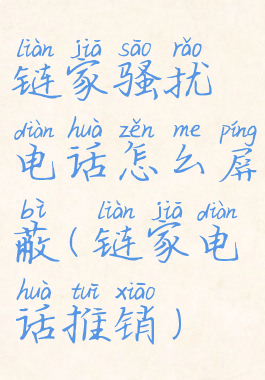 liàn jiā sāo rǎo
链家骚扰
diàn huà zěn me píng
电话怎么屏
bì liàn jiā diàn
蔽(链家电
huà tuī xiāo
话推销)